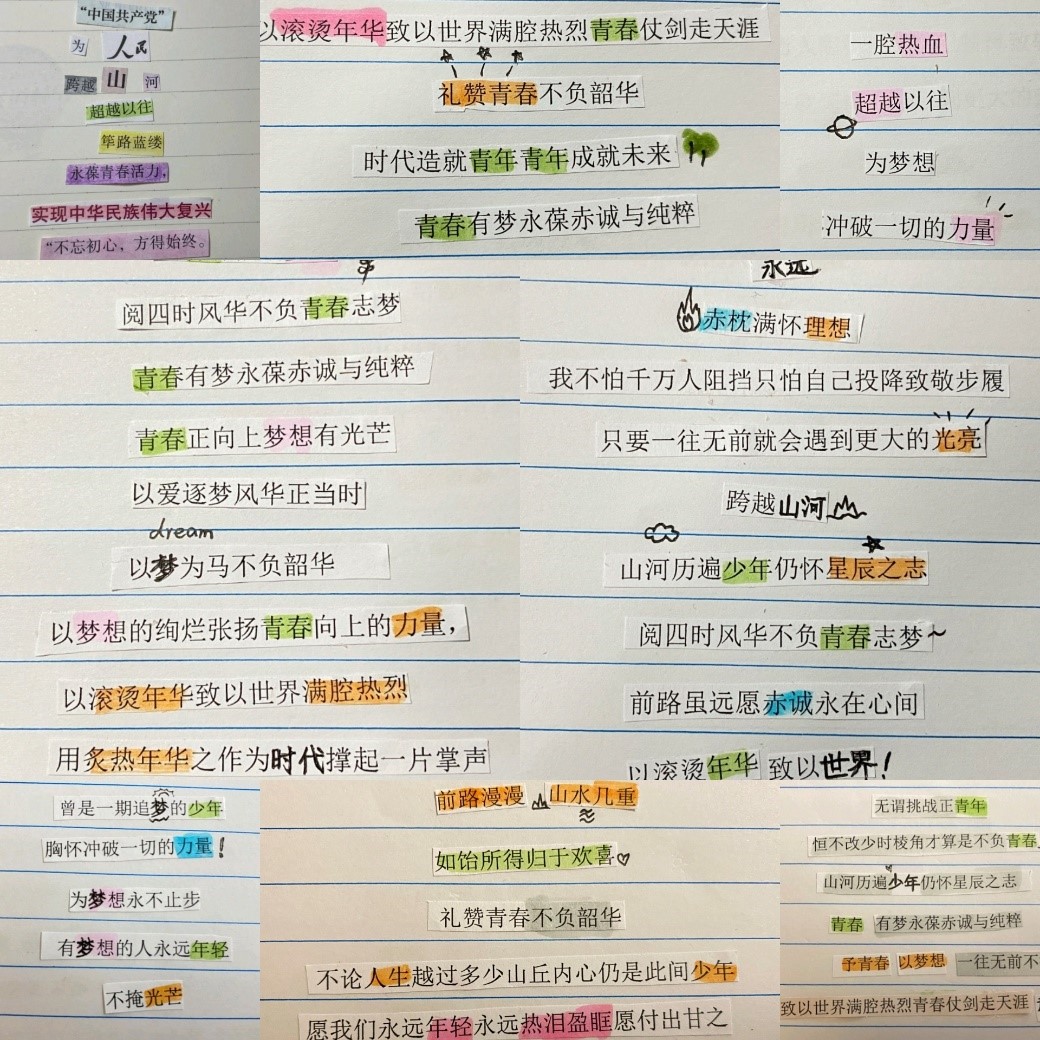 “中国共产党”
为 人民
跨越 山 河
超越以往
筚路蓝缕
永葆青春活力，
实现中华民族伟大复兴
“不忘初心，方得始终。
以滚烫年华致以世界满腔热烈青春仗剑走天涯
礼赞青春不负韶华
时代造就青年青年成就未来
青春有梦永葆赤诚与纯粹
一腔热血
超越以往
为梦想
冲破一切的力量
阅四时风华不负青春志梦
青春有梦永葆赤诚与纯粹
青春正向上梦想有光芒
以爱逐梦风华正当时
dream
以梦为马不负韶华
以梦想的绚烂张扬青春向上的力量，
以滚烫年华致以世界满腔热烈
用炙热年华之作为时代撑起一片掌声
永远
赤枕满怀理想
我不怕千万人阻挡只怕自己投降致敬步履
只要一往无前就会遇到更大的光亮
跨越山河
山河历遍少年仍怀星辰之志
阅四时风华不负青春志梦~
前路虽远愿赤诚永在心间
以滚烫年华 致以世界！
曾是一期追梦的少年
胸怀冲破一切的力量！
为梦想永不止步
有梦想的人永远年轻
不掩光芒
前路漫漫 山水几重
如饴所得归于欢喜♡
礼赞青春不负韶华
不论人生越过多少山丘内心仍是此间少年
愿我们永远年轻永远热泪盈眶愿付出甘之
无谓挑战正青年
恒不改少时棱角才算是不负青春
山河历遍少年仍怀星辰之志
青春 有梦永葆赤诚与纯粹
予青春 以梦想 一往无前不
致以世界满腔热烈青春仗剑走天涯